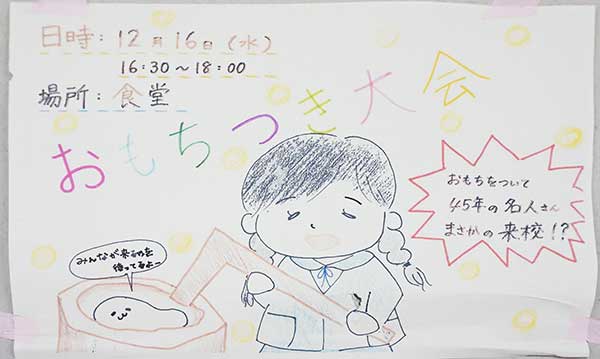 日時：12月16日（水）
16：30〜18：00
場所：食堂
おもちつき大会
おもちをついて
45年の名人さん
まさかの来校！？
みんなが来るのを
待ってるよー